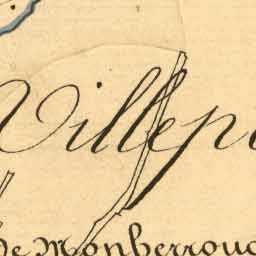 Villep
de Monberrou